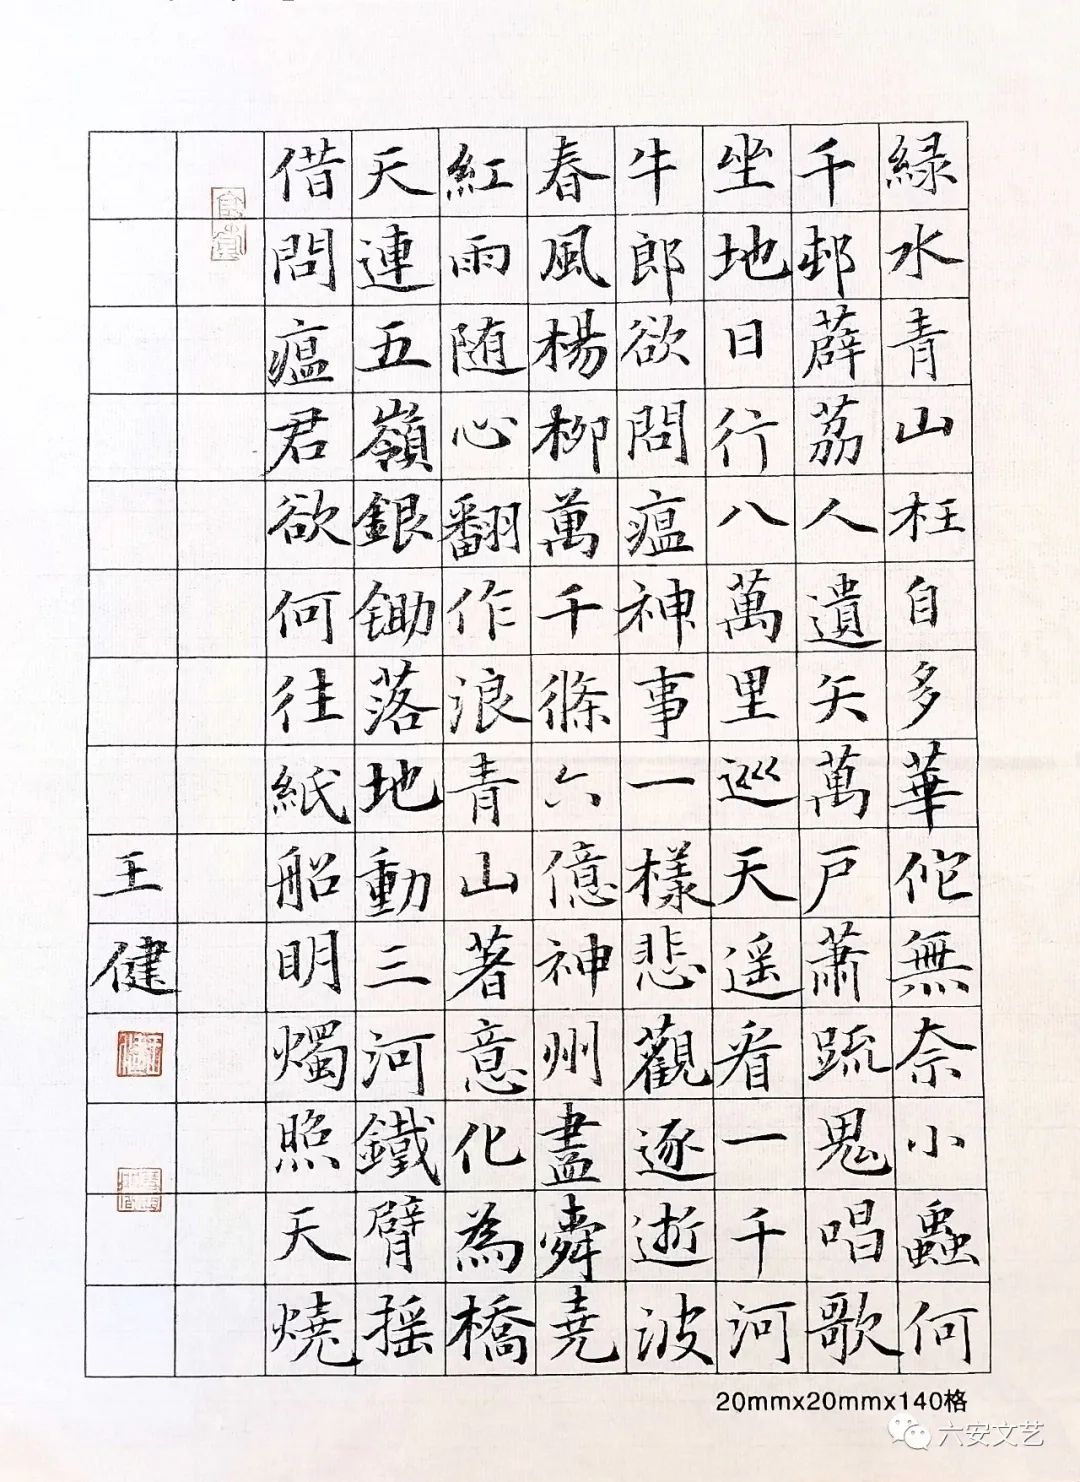 緑水青山枉自多華佗無奈小蟲何
千邨薜荔人遺矢萬戸蕭疏鬼唱歌
坐地日行八萬里巡天遥看一千河
牛郎欲問瘟神事一樣悲觀逐逝波
春風楊柳萬千條六億神州盡舜堯
紅雨随心翻作浪青山著意化為橋
天連五嶺銀锄落地動三河鐵臂摇
借問瘟君欲何往紙船明燭照天燒
王健
20mmx20mmx140格
六安文艺